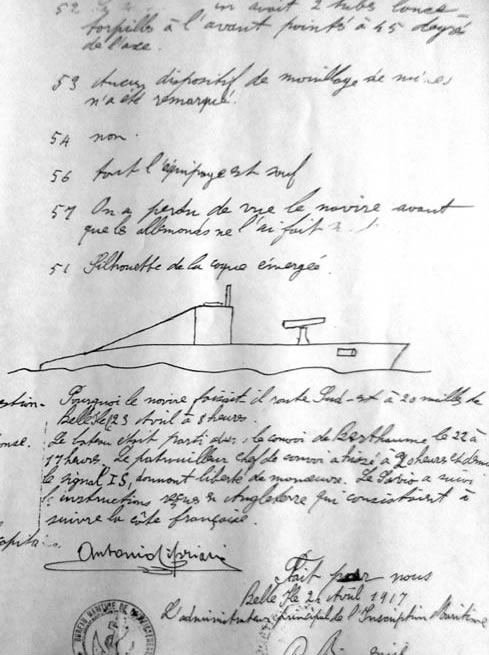 52 avait 2 tubes lance
torpilles à l'avant pointés à 45 degrés
de l'axe.
53 Aucun dispositif de mouillage de mines
n'a été remarqué.
54 non.
56 tout l'équipage est sauf
57 On a perdu de vue le navire avant
que les allemands ne l'ai fait
51 Silhouette de la coque émergée
Pourquoi le navire faisait il route Sud-est à 20 milles de
Belle Ile 23 Avril à 8 heures.
était parti avec le convoi de Berthaume le 22 à
17 heures. Le patrouilleur chef de convoi a hissé à 20 heures
le signal IS, donnant liberté de manoeuvre. Le a suivi
instructions reçues en Angleterre qui consistaient à
suivre la côte française.
Capitai
Antonio
Fait par nous
Belle Ile 24 Avril 1917
L'administrateur principal de l'Inscription Maritime